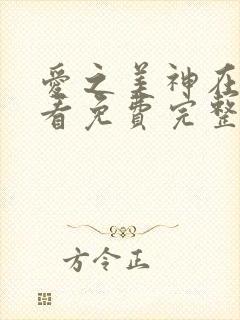 愛之美神在
看免費完整
方令正